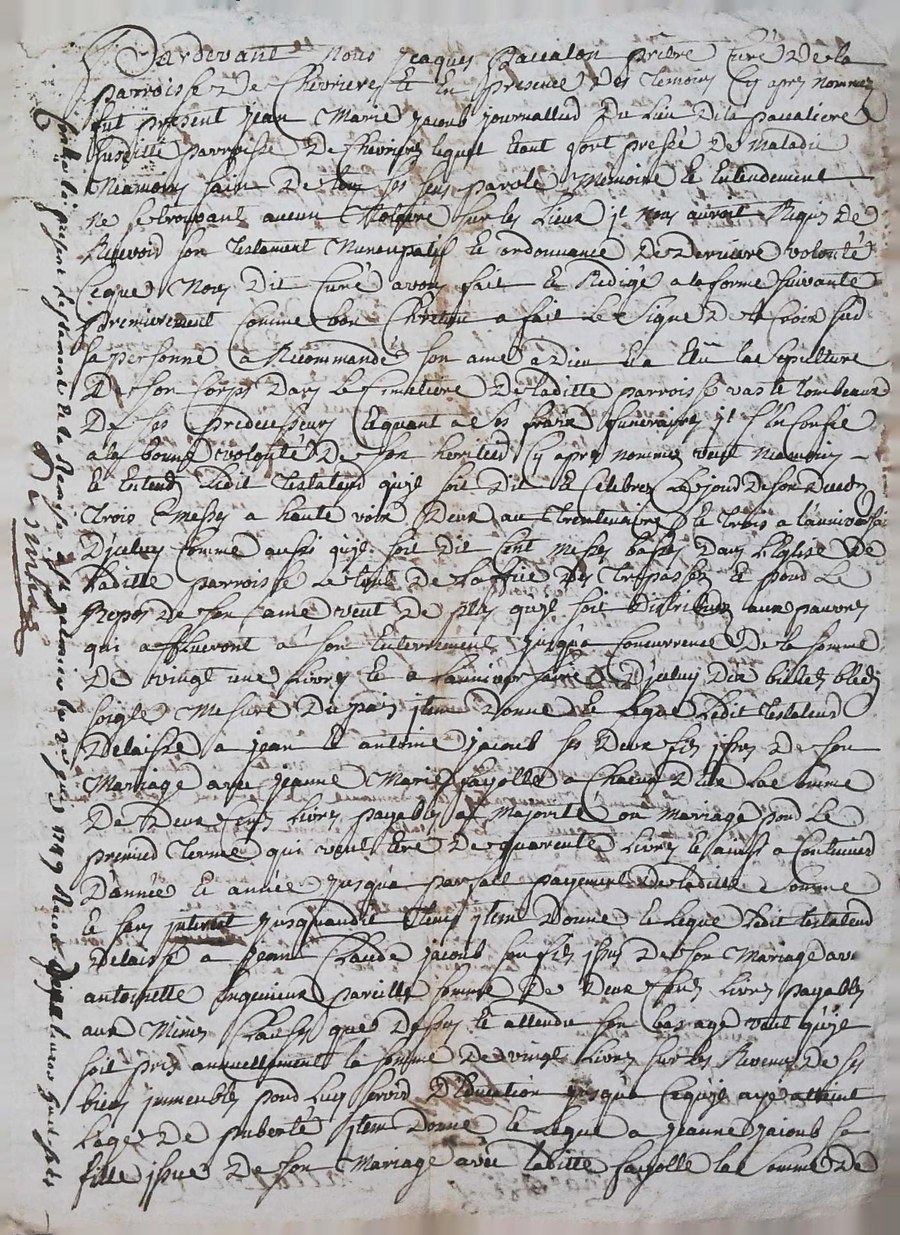 Pardevant nous Jaques pascalon prêtre Curé De la
parroisse De Chevrieres Et En presence Des temoins Cy apres nommes
fut present jean Marie jacoub journallier Du Lieu De la
susditte parroisse De Chevrieres lequel Etant fort pressé De maladie
Neamoins saint De tous ses sens parole Memoire Et Entendement
ne se trouvant aucun Notaire sur les Lieux jl nous auroit Requis De
Recevoir son testament Nuncupatif Et ordonnance De Derniere volonté
Ce que Nous Dit Curé avons fait Et Redigé a la forme suivante
premierement Comme bon Chretien a fait Le signe De la Croix sur
sa personne a Recommandé son ame a Dieu Et a Elû la sepulture
De son Corps Dans Le Cimetiere De laditte parroisse vas le tombeaux
De ses predecesseurs Et quant a ses fraix funeraires jl s'En Confie
a la bonne volonté De son heritier Cy apres nommé veut Neamoins
Et Entend Ledit testateur qu'jl soit Dit Et Celebrez Le jour De son Deces
trois Messes a haute voix Deux au trentenaire Et trois a l'anniversaire
D'jceluy Comme aussi qu'jl soit Dit Cent Messes basses Dans L'Eglise De
Laditte parroisse Le tout De trepasses Et pour Le
Repos De son ame veut De plus qu'jl soit Distribuez aux pauvres
qui afflueront a son Enterrement jusqu'a Concurrence De la somme
De vingt une Livres Et a l'anniversaire D'jceluy Dix bichets bled
soigle Mesure Du païs jtem Donne Et Legue Ledit testateur
Delaissé a jean Et antoine jacoub ses Deux fils jssus De son
Mariage avec jeanne Marie fayolle a Chacun D'Eux La somme
De Deux Cens Livres payables a Majorité ou Mariage pour Le
premier terme qui veut Etre De quarente Livres Et ainsi a Continuer
D'année En année jusqu'a parfait payement De laditte somme
Et sans jnterest jusqu'audit tems jtem Donne Et Legue Ledit testateur
Delaissé a jean Claude jacoub son fils jssus De son Mariage avec
antoinette jngenieux pareille somme De Deux Cens Livres payables
aux Mêmes Clauses que Dessus Et attendu son bas age veut qu'jl
soit pris annuellement la somme De vingt Livres sur les Revenus De ses
biens jmmeubles pour Luy servir D'Education jusqu'a Ce qu'jl aye atteint
L'age De puberté jtem Donne Et Legue a jeanne jacoub sa
fille jssue De son Mariage avec laditte fayolle La somme De
le present testament Et la Remise st galmier le 1789